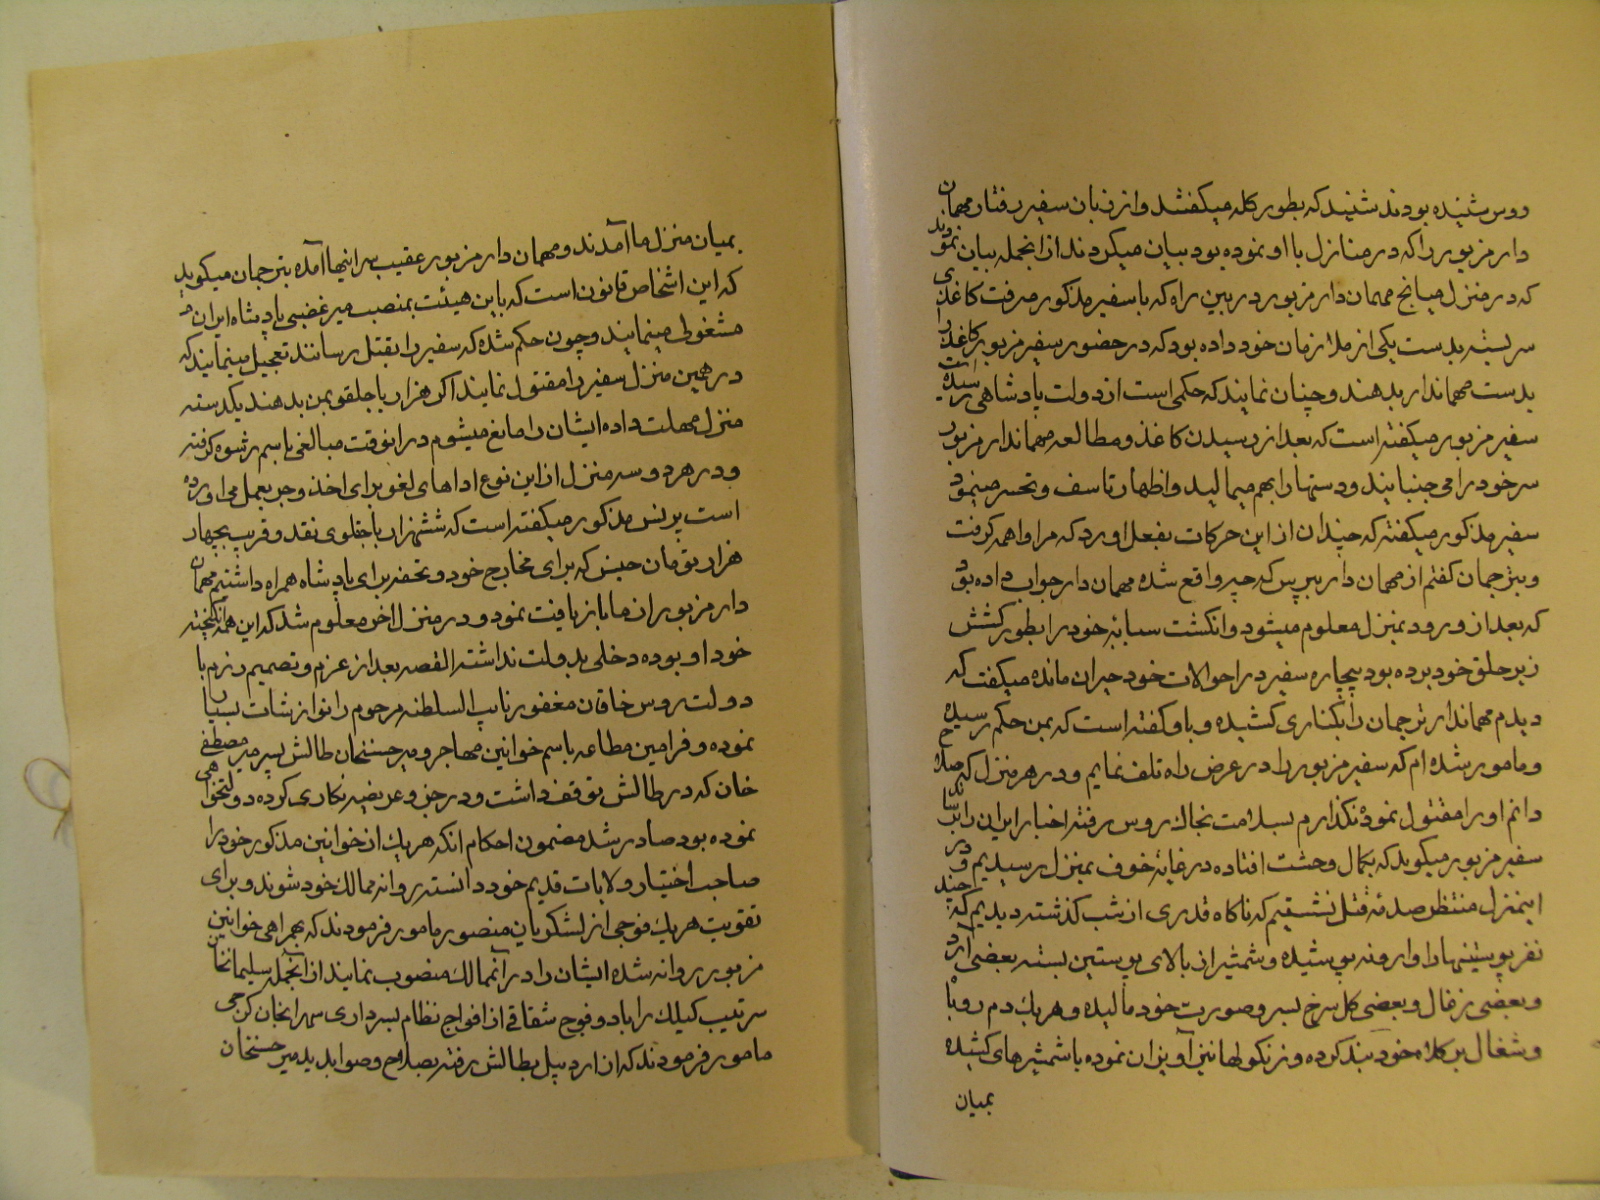 روس شنیده بودند شنید که بطور کله میکفتند و از زبان سفیر رفتار مهمان
دار مزبور را که در منازل با او نموده بود بیان میکردند از انجمله بیان نمودند
که در منزل میانج مهمان دار مزبور در بین راه که با سفیر مذکور میرفت کاغذی
سربسته بدست یکی از ملازمان خود داده بود که در حضور سفیر مزبور کاغذ را
بدست مهماندار بدهند و چنان نمایند که حکمی است از دولت پادشاهی رسیده است
سفیر مزبور میکفته است که بعد از رسیدن کاغذ و مطالعه مهماندار مزبور
سر خود را می جنبانید و دستها را بهم میمالید و اظهار تاسف و تحسر مینمود
سفیر مذکور میکفته که چندان از این حرکات بفعل اورد که مرا واهمه کرفت
و بترجمان کفتم از مهمان دار بپرس که چه واقع شده مهمان دار جواب داده بود
که بعد از ورود بمنزل معلوم میشود و انکشت سبابهٔ خود را بطور کشش
زیر حلق خود برده بود بیچاره سفیر در احوالات خود حیران مانده میکفت که
دیدم مهماندار ترجمان را بکناری کشیده و باو کفته است که بمن حکم رسیده
و مامور شده ام که سفیر مزبور را در عرض راه تلف نمایم و در هر منزل که صلاح
دانم او را مقتول نموده نکذارم بسلامت بخاک روس رفته اخبار ایران را برساند
سفیر مزبور میکوید که بکمال وحشت افتاده در غایهٔ خوف بمنزل رسیدیم و در
اینمنزل منتظر صدمهٔ قتل نشستیم که ناکاه قدری از شب کذشته دیدیم که چند
نفر پوستینها را وارونه پوشیده و شمشیر از بالای پوستین بسته بعضی آرد
و بعضی زغال و بعضی کل سرخ بسر و صورت خود مالیده و هر یک دم روباه
و شغال بر کلاه خود بند کرده و زنکولها نیز آویزان نموده با شمشیرهای کشیده
بمیان
بمیان منزل ما آمدند و مهمان دار مزبور عقب سر اینها آمده بترجمان میکوید
که این اشخاص قانون است که باین هیئت بمنصب میر غضبی پادشاه ایران
مشغولی مینمایند و چون حکم شده که سفیر را بقتل رسانند تعجیل مینمایند که
در همین منزل سفیر را مقتول نمایند اکر هزار باجلقو بمن بدهند یکدسته
منزل مهلت داده ایشان را مانع میشوم در انوقت مبالغی باسم رشوه کرفته
و در هر دو سه منزل از این نوع اداهای لغو برای اخذ وجر بعمل می اورده
است پرنس مذکور میکفته است که ششهزار باجقلوی نقد و قریب بچهار
هزار تومان جنس که برای مخارج خود و تحفه برای پادشاه همراه داشتم مهمان
دار مزبور از ما بازیافت نمود و در منزل اخر معلوم شد که این همه انکیخته
خود او بوده دخلی بدولت نداشته القصه بعد از عزم و تصمیم رزم با
دولت روس خاقان مغفور نایب السلطنه مرحوم را نوازشات بسیار
نموده و فرامین مطاعه باسم خوانین مهاجر و میر حسنخان طالش پسر میر مصطفی
خان که در طالش توقف داشت و در جزو عریضه نکاری کرده دولتخواهی
نموده بود صادر شد مضمون احکام انکه هر یک از خوانین مذکور خود را
صاحب اختیار ولایات قدیم خود دانسته روانه ممالک خود شوند و برای
تقویت هر یک فوجی از لشکریان منصور مامور فرمودند که بهمراهی خوانین
مزبور روانه شده ایشان را در آنممالک منصوب نمایند از آنجمله سلیمانخان
سرتیب کیلک را با دو فوج شقاقی از افواج نظام بسرداری سهرابخان کرجی
مامور فرمودند که از اردبیل بطالش رفته بصلاح و صوابدید میر حسنخان